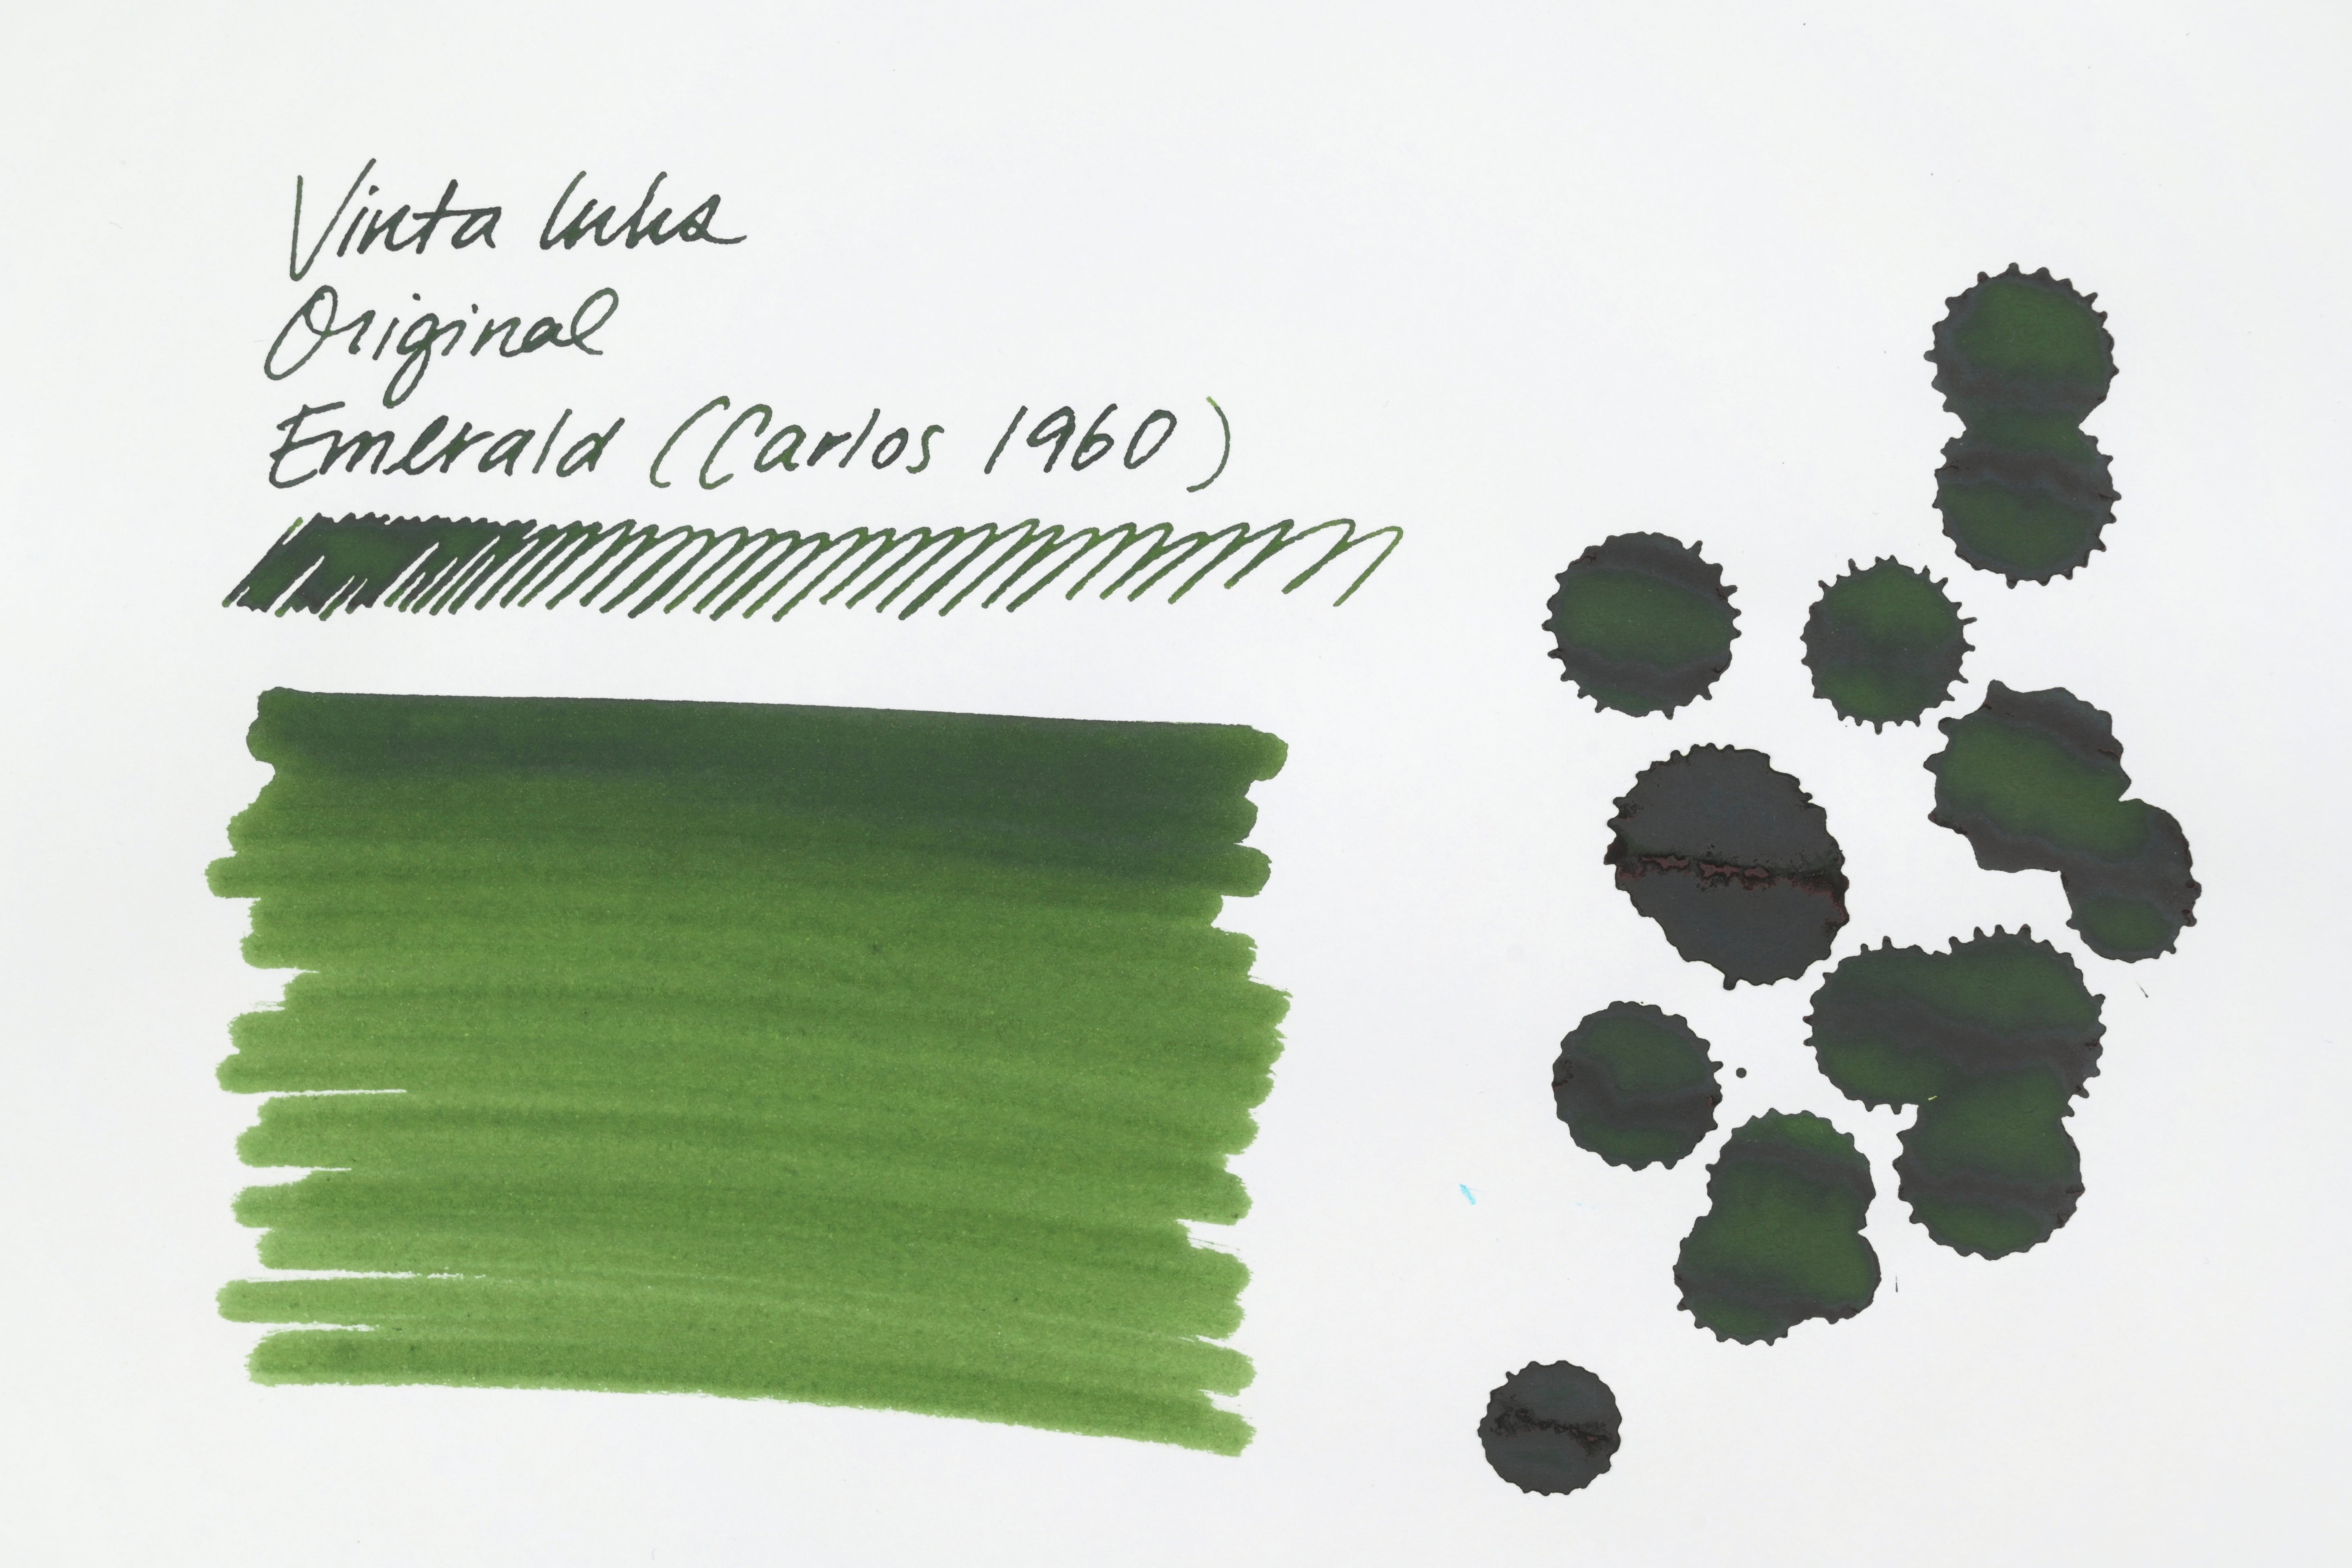 Vinta Inks
Original
Emerald (Carlos 1960)